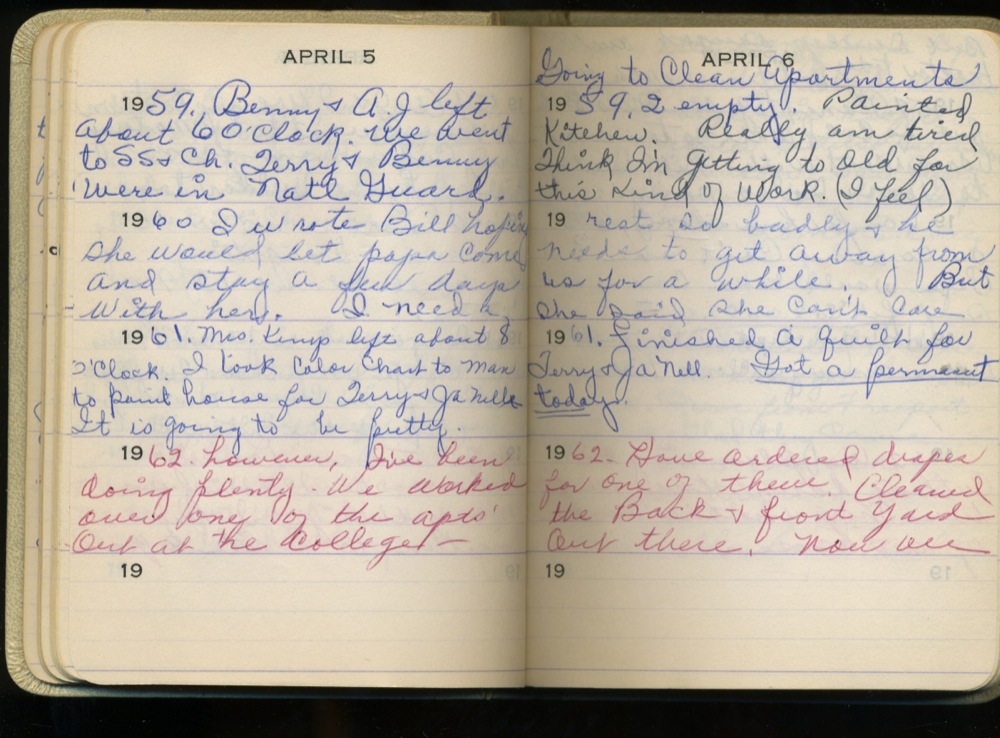 APRIL 5
1959. Benny & A.J left
about 6 O'Clock. We went
to SS & Ch. Terry & Benny
were in Natl Guard.
1960 I wrote Bill hoping
she would let papa come
and stay a few days
with her. I need a
1961. Mrs. Kemp left about 8
O'Clock. I took Color Chart to man
to paint house for Terry & Ja Nell
It is going to be pretty.
1962. however, I've been
doing plenty. We worked
over one of the apts'
Out at the College—
19
APRIL 6
Going to Clean Apartments
1959. 2 empty. Painted
Kitchen. Really am tired
Think I'm getting to Old for
this Kind of Work. (I feel)
19 rest so badly & he
needs to get away from
us for a while. But
she said she Can't Care
1961. Finished a quilt for
Terry & Ja'Nell. Got a permanent
today.
1962. Have ordered drapes
for one of them. Cleaned
the Back & front yard
Out there. Now we
19